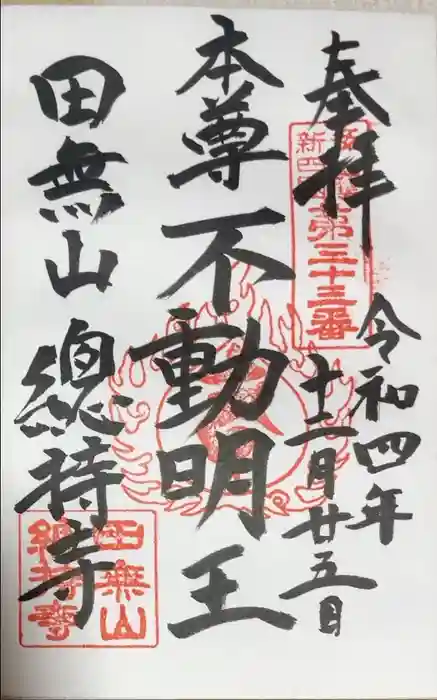 奉拝
第三十三番
令和四年
十二月廿五日
本尊 不動明王
田無山 總持寺
田無山
總持寺